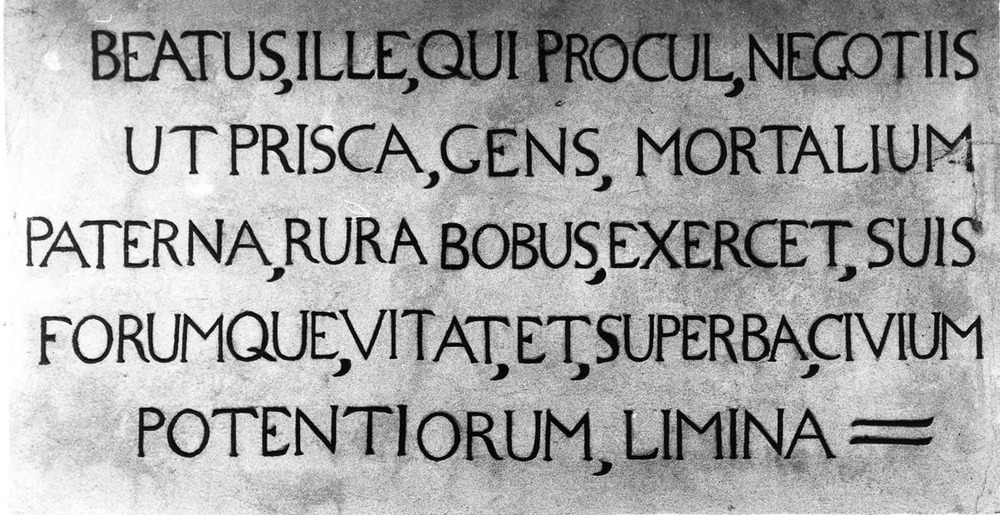 BEATUS,ILLE,QUI PROCUL,NEGOTIIS
UT PRISCA,GENS, MORTALIUM
PATERNA,RURA BOBUS,EXERCET, SUIS
FORUMQUE,VITAT,ET,SUPERBA,CIVIUM
POTENTIORUM, LIMINA =